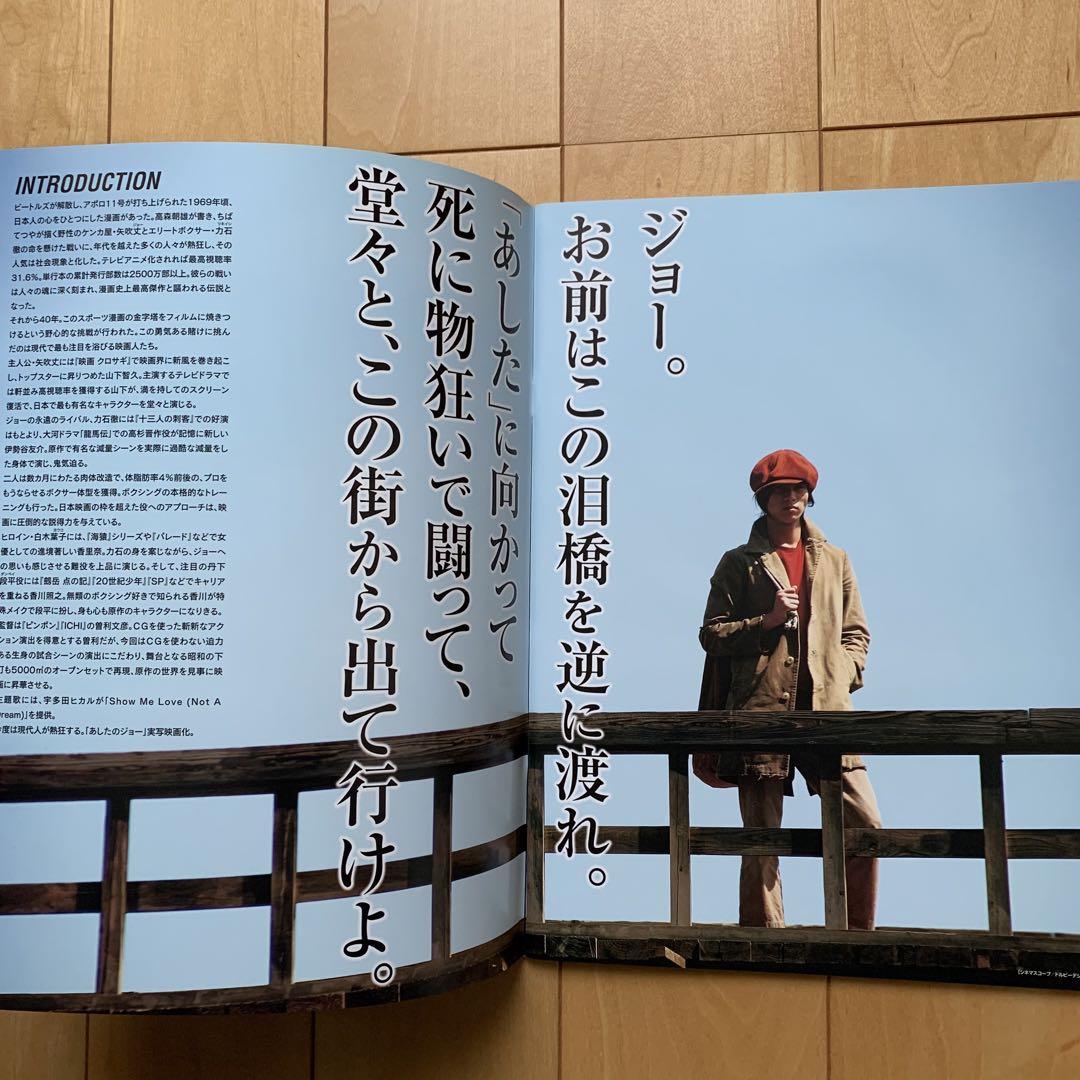 INTRODUCTION
ビートルズが解散し、アポロ11号が打ち上げられた1969年頃、
日本人の心をひとつにした漫画があった。高森朝雄が書き、ちば
てつやが描く野性のケンカ屋・矢吹丈とエリートボクサー・力石
徹の命を懸けた戦いに、年代を越えた多くの人々が熱狂し、その
人気は社会現象と化した。テレビアニメ化されれば最高視聴率
31.6%。単行本の累計発行部数は2500万部以上。彼らの戦い
は人々の魂に深く刻まれ、漫画史上最高傑作と謳われる伝説と
なった。
それから40年。このスポーツ漫画の金字塔をフィルムに焼きつ
けるという野心的な挑戦が行われた。この勇気ある賭けに挑ん
だのは現代で最も注目を浴びる映画人たち。
主人公・矢吹丈には『映画 クロサギ』で映画界に新風を巻き起こ
し、トップスターに昇りつめた山下智久。主演するテレビドラマで
は軒並み高視聴率を獲得する山下が、満を持してのスクリーン
復活で、日本で最も有名なキャラクターを堂々と演じる。
ジョーの永遠のライバル、力石徹には『十三人の刺客』での好演
はもとより、大河ドラマ「龍馬伝」での高杉晋作役が記憶に新しい
伊勢谷友介。原作で有名な減量シーンを実際に過酷な減量をし
た身体で演じ、鬼気迫る。
二人は数カ月にわたる肉体改造で、体脂肪率4%前後の、プロを
もうならせるボクサー体型を獲得。ボクシングの本格的なトレー
ニングも行った。日本映画の枠を超えた役へのアプローチは、映
画に圧倒的な説得力を与えている。
ヒロイン・白木葉子には、『海猿』シリーズや『パレード』などで女
優としての進境著しい香里奈。力石の身を案じながら、ジョーへ
の思いも感じさせる難役を上品に演じる。そして、注目の丹下
段平役には『劔岳 点の記』『20世紀少年』『SP』などでキャリア
を重ねる香川照之。無類のボクシング好きで知られる香川が特
殊メイクで段平に扮し、身も心も原作のキャラクターになりきる。
監督は『ピンポン』『ICHI』の曽利文彦。CGを使った斬新なアク
ション演出を得意とする曽利だが、今回はCGを使わない迫力
ある生身の試合シーンの演出にこだわり、舞台となる昭和の下
町も5000㎡のオープンセットで再現、原作の世界を見事に映
画に昇華させる。
主題歌には、宇多田ヒカルが「Show Me Love (Not A
Dream)」を提供。
今度は現代人が熱狂する。「あしたのジョー」実写映画化。
ジョー。
お前はこの泪橋を逆に渡れ。
「あした」に向かって
死に物狂いで闘って、
堂々と、この街から出て行けよ。